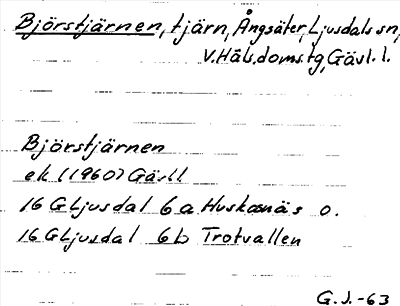 Björstjärnen, tjärn, Ångsäter, Ljusdals sn,
V. Häls. doms. tg, Gävl. l.
Björstjärnen
ek (1960) Gävl l
16 G Ljusdal 6 a Huskasnäs o.
16 G Ljusdal 6 b Trotvallen
G. J. - 63